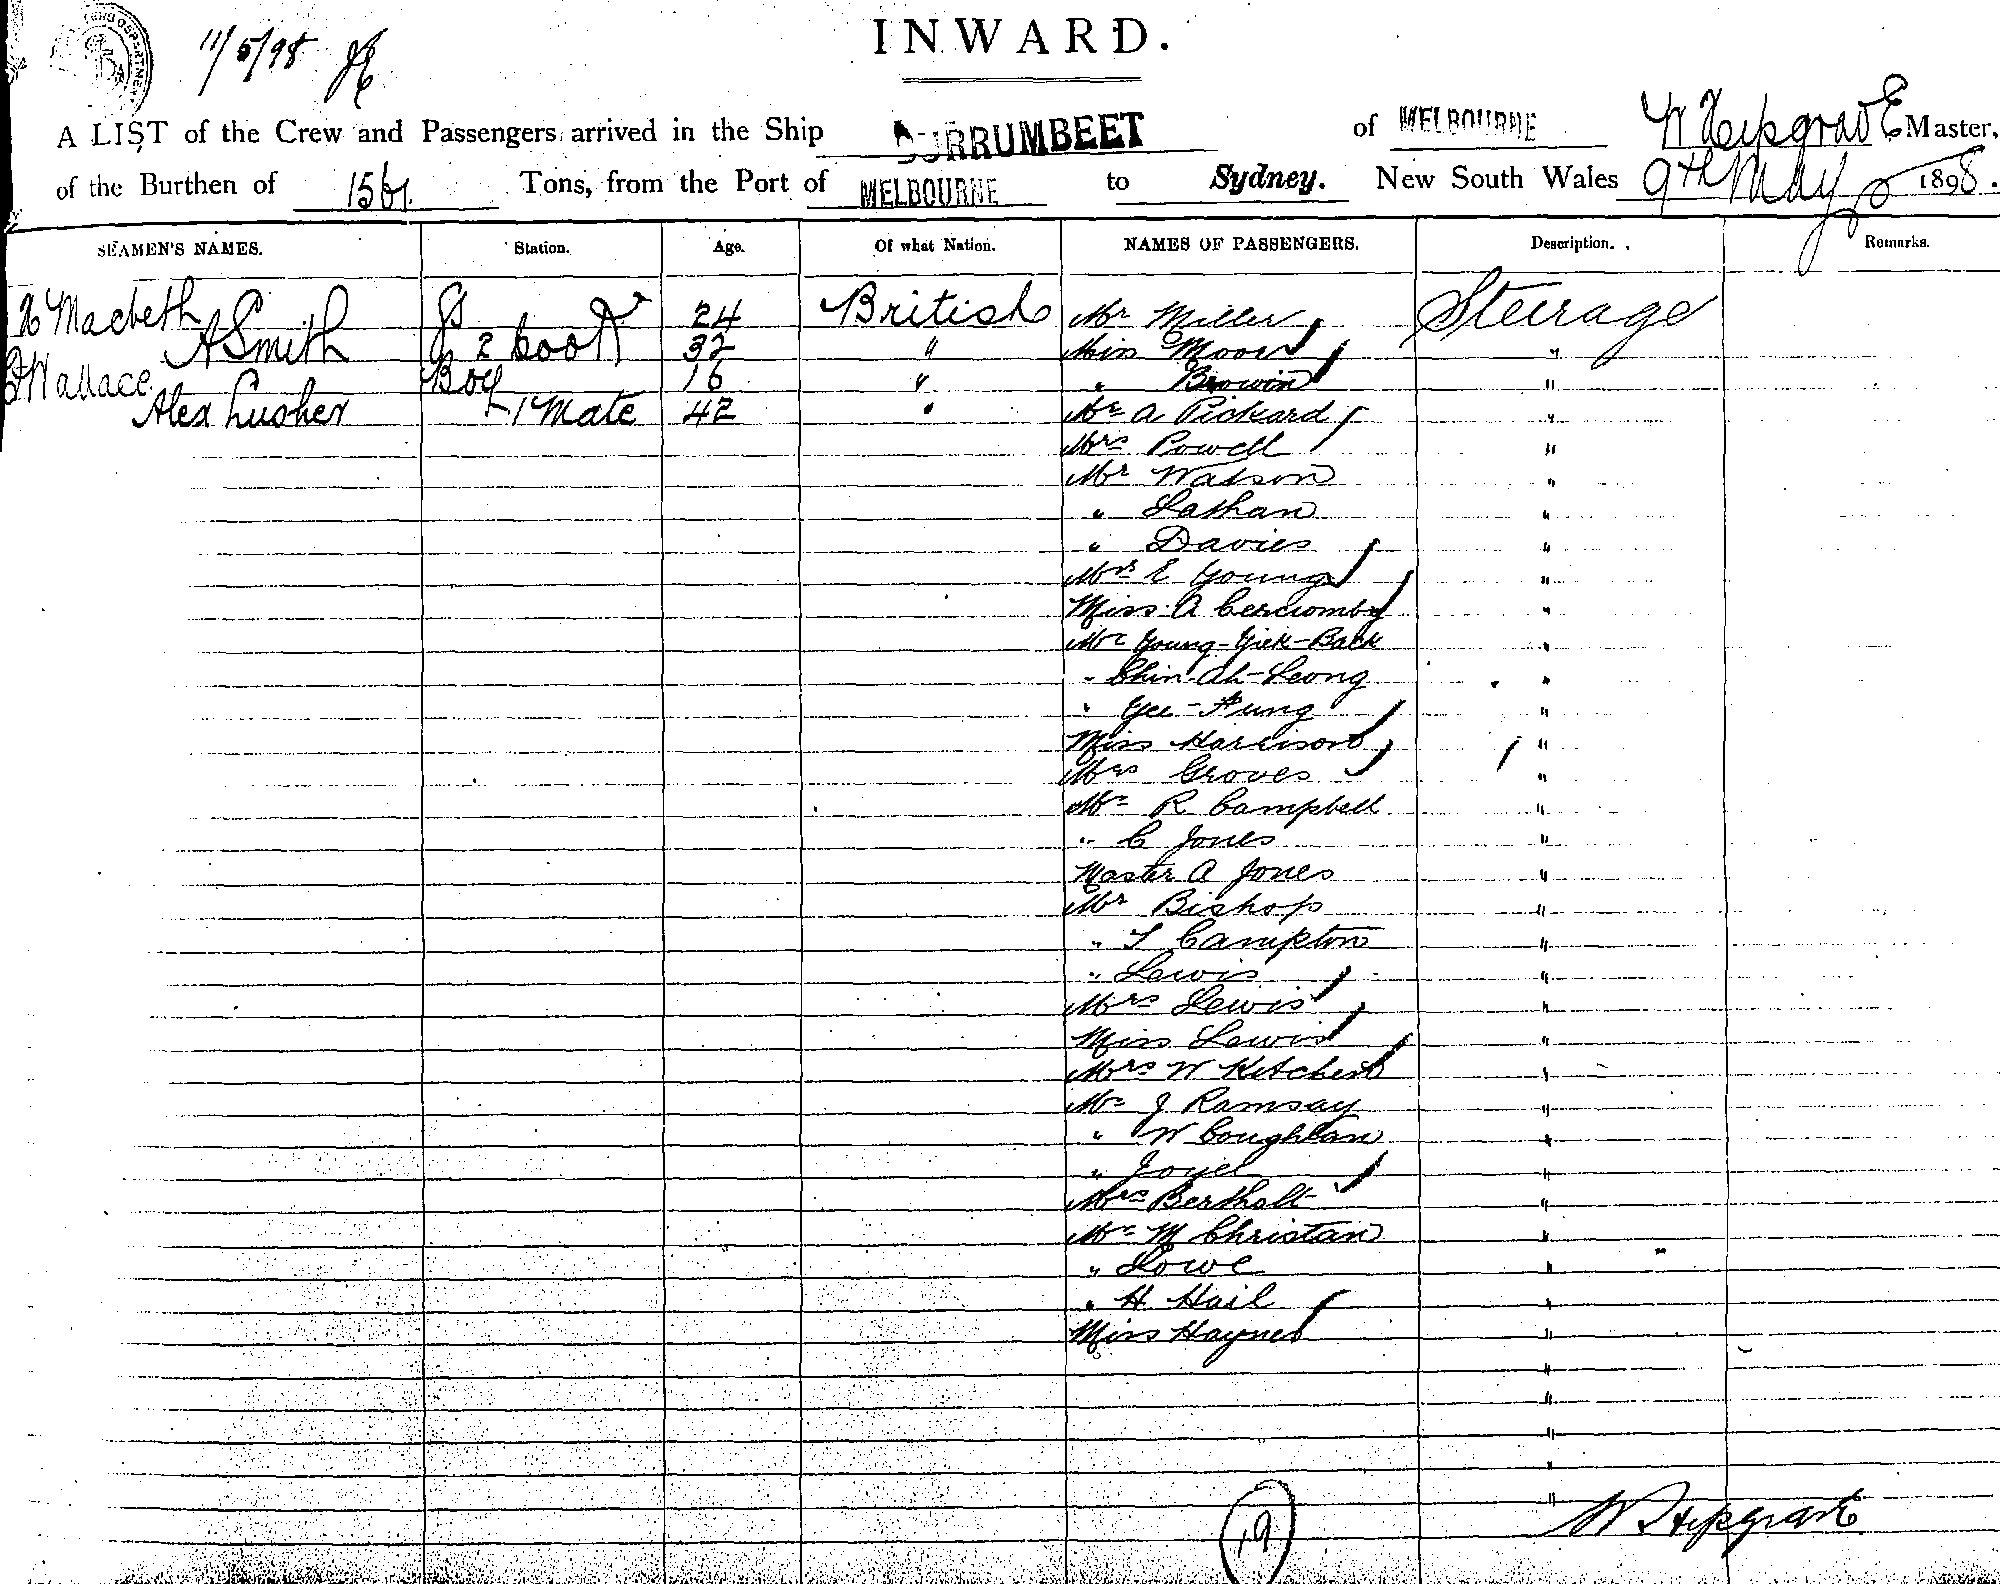 11/5/98
INWARD.
A LIST of the Crew and Passengers arrived in the Ship BURRUMBEET of MELBOURNE W Hepgrave Master,
of the Burthen of 1561. Tons, from the Port of MELBOURNE to Sydney. New South Wales 9th May 1898.
SEAMEN'S NAMES. Station. Age. Of what Nation. NAMES OF PASSENGERS. Description. Remarks.
Macbeth 24 British Mr Miller Steirage
A Smith 2 Cook 32 " Miss Moore "
Wallace Boy 16 " " Browin "
Alex Lusher 1 Mate 42 " Mr A Pickard "
Mrs Powell "
Mr Watson "
" Lathan "
" Davies "
Mrs E Young "
Miss A Cercromby "
Mr Young-Yick-Back "
" Chin-Ah-Leong "
" Yee-Fung "
Miss Harrison "
Mrs Groves "
Mr R Campbell "
" C Jones "
Master A Jones "
Mr Bishop "
" T Campton "
" Lewis "
Mrs Lewis "
Miss Lewis "
Mrs W Ketchen "
Mr J Ramsay "
" W Coughlan "
" Joyel "
Mrs Bertholt "
Mr M Christan "
" Lowe "
" H Hail "
Miss Haynes "
"
"
"
"
"
19 W Hepgrave